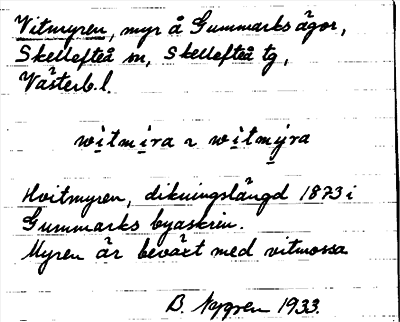 Vitmyren, myr å Gummarks ägor,
Skellefteå sn, Skellefteå tg,
Västerb. l.
witmira ~ witmýra
Hvitmyren, dikningslängd 1873 i
Gummarks byaskrin.
Myren är beväxt med vitmossa
B. Nygren 1933.